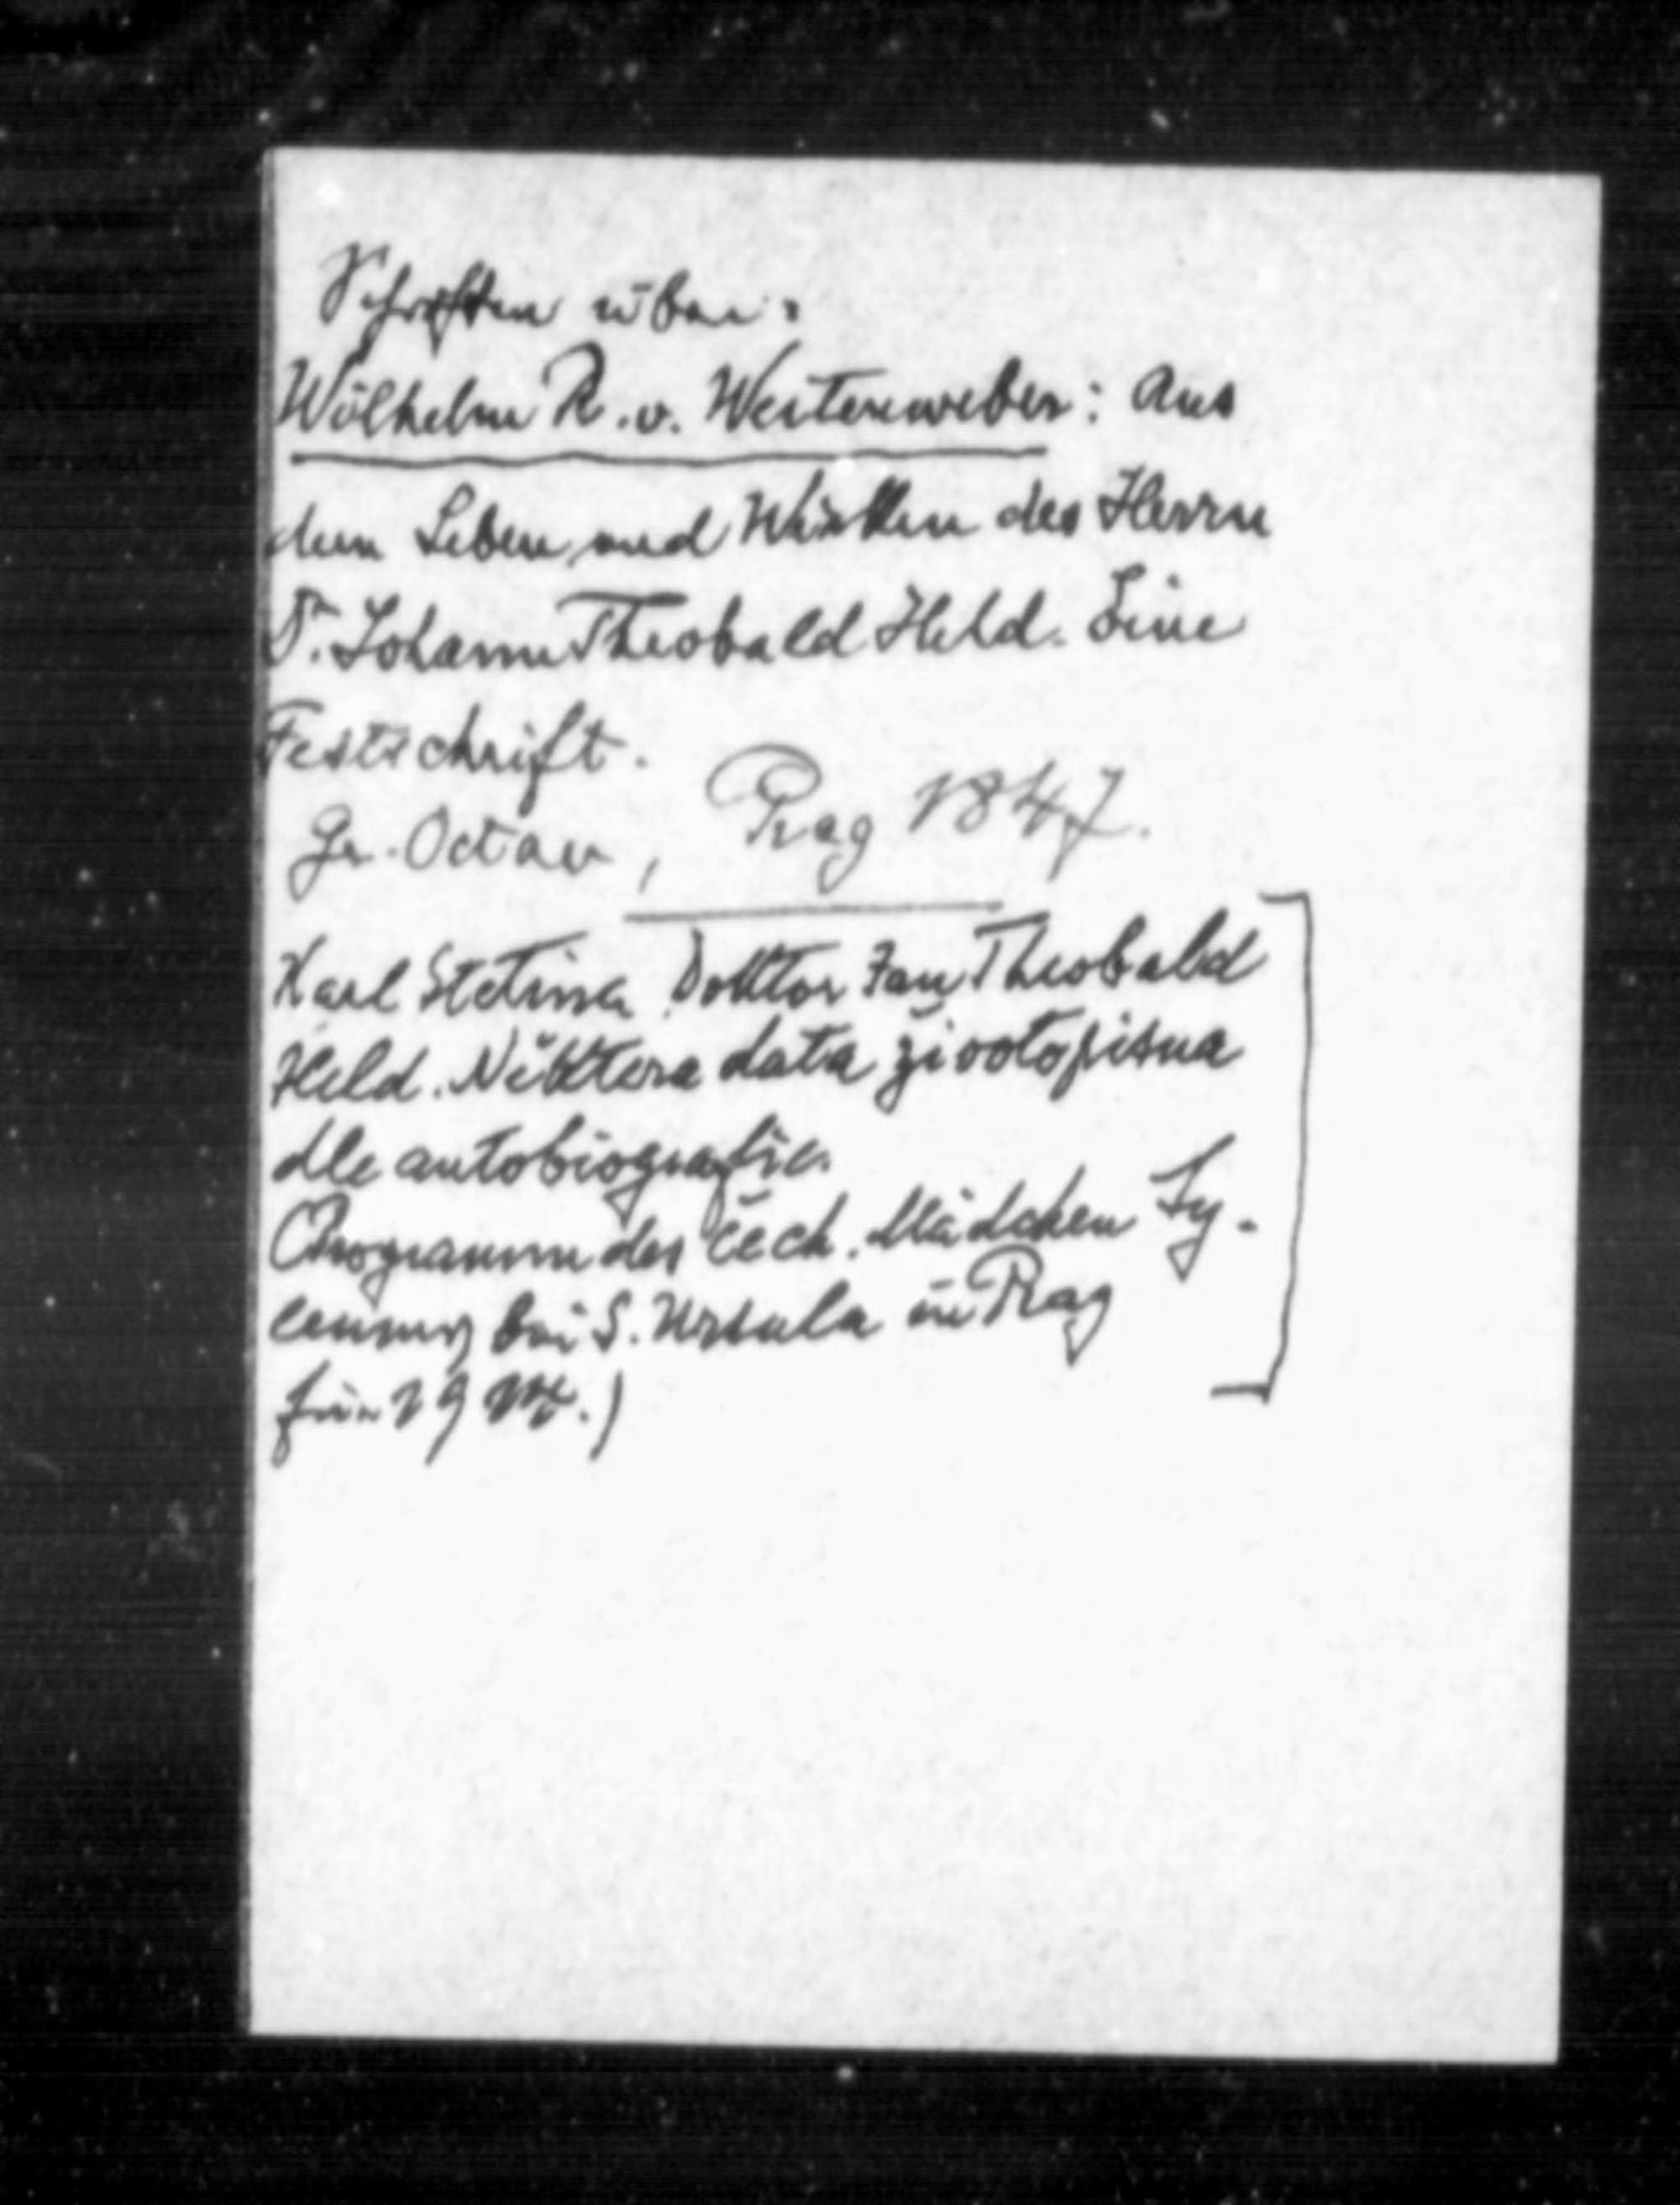 Schriften über:
Wilhelm R. v. Weitenweber: Aus
dem Leben und Wirken des Herrn
D. Johann Theobald Held. Eine
Festschrift.
Gr. Octav, Prag 1847.
Karl Stetina Doktor Jan Theobald
Held. Nĕktera data životopisna
dle autobiografie.
Programm des čech. Mädchen Ly-
ceums bei S. Ursula in Prag
für 19